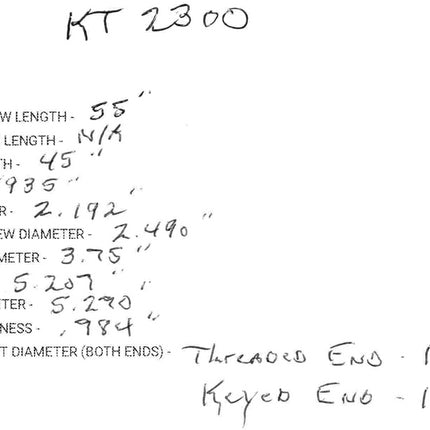 KT 2300
W LENGTH - 55"
LENGTH - N/A
TH - 45"
935"
R - 2.192"
EW DIAMETER - 2.490"
METER - 3.75"
5.207"
TER - 5.290"
NESS - .984"
T DIAMETER (BOTH ENDS) - THREADED END - 1
KEYED END - 1